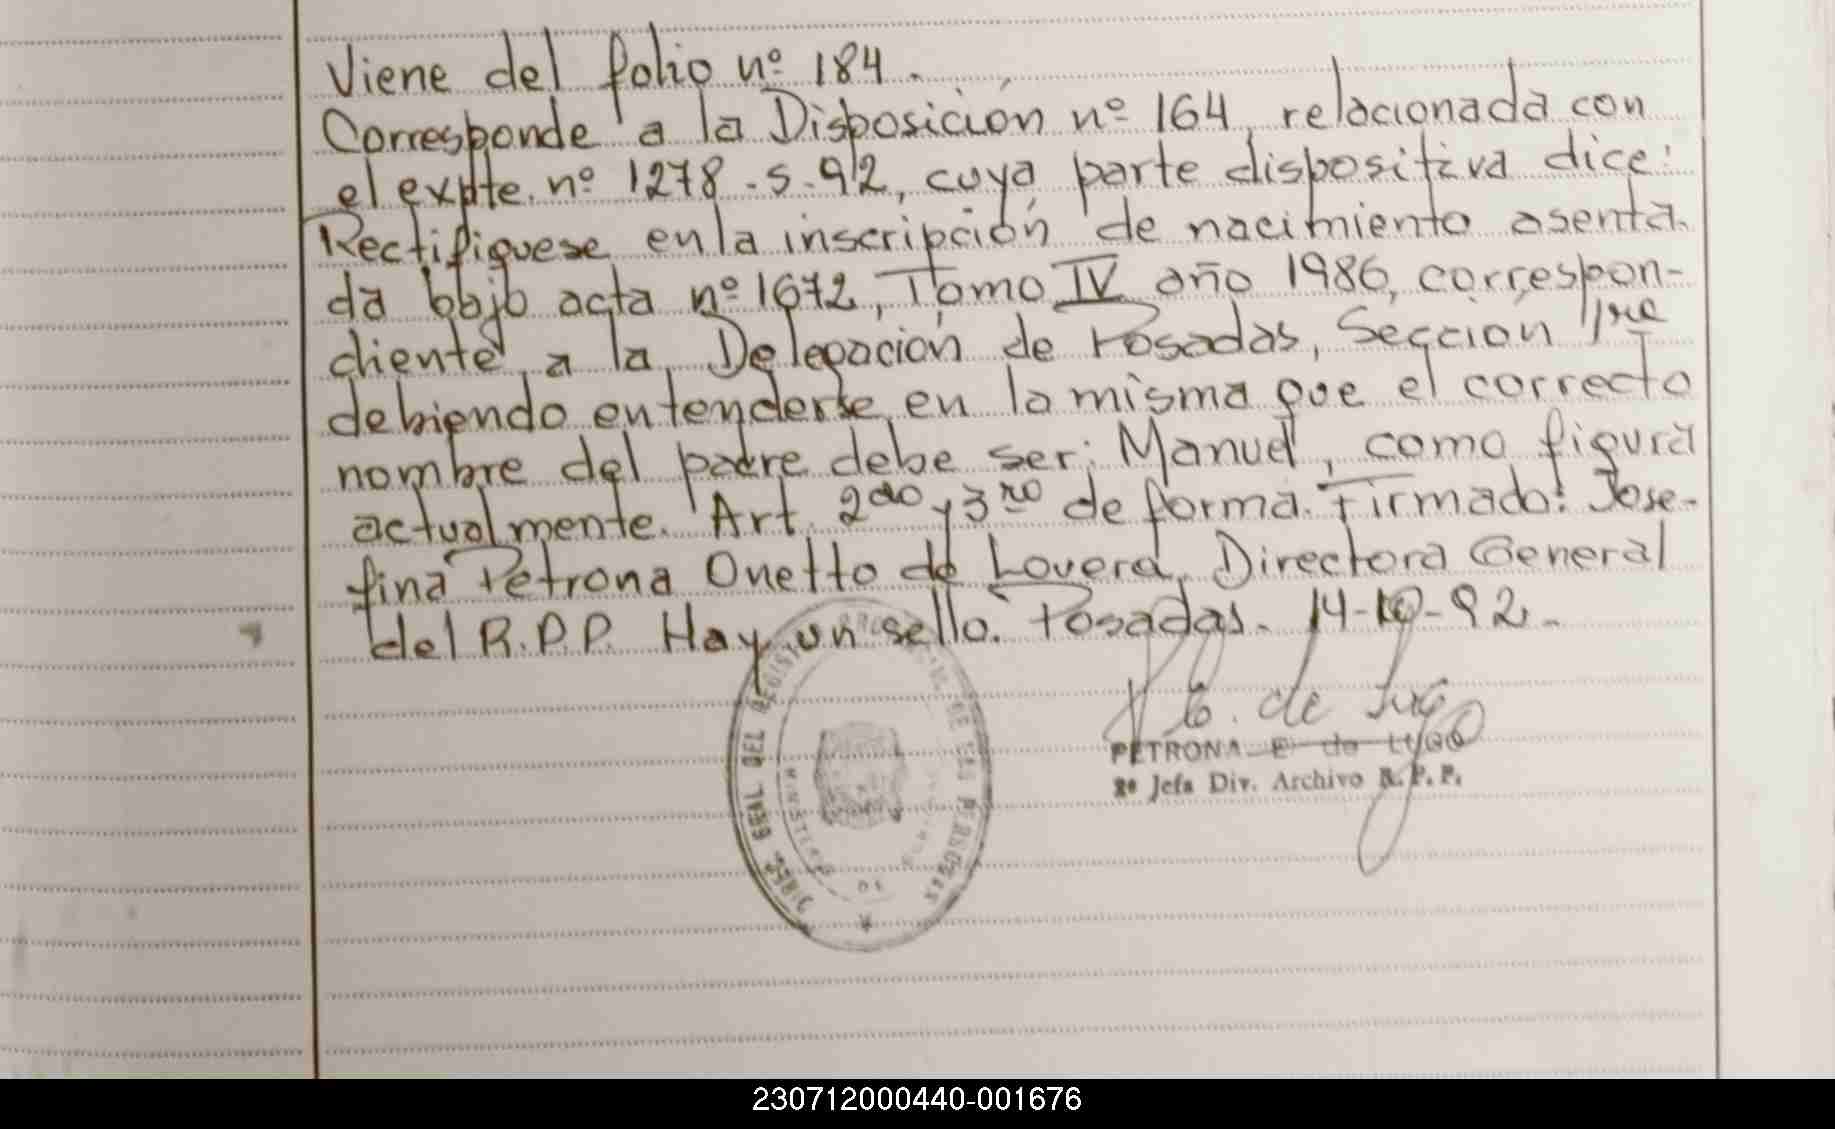 Viene del folio nº 184.
Corresponde a la Disposición nº 164, relacionada con
el expte. nº 1278-S-92, cuya parte dispositiva dice:
Rectifiquese en la inscripción de nacimiento asenta-
da bajo acta nº 1672, Tomo IV año 1986, correspon-
diente a la Delegación de Posadas, Sección 1ra
debiendo entenderse en la misma que el correcto
nombre del padre debe ser: Manuel, como figura
actualmente. Art. 2do y 3ro de forma. Firmado: Jose-
fina Petrona Onetto de Lovera, Directora General
del R.P.P. Hay un sello. Posadas. 14-10-92.
PETRONA E de LUGO
2º Jefa Div. Archivo R. P. P.
GRAL. DEL REGISTRO DE LAS PERSONAS
MINISTERIO DE
230712000440-001676